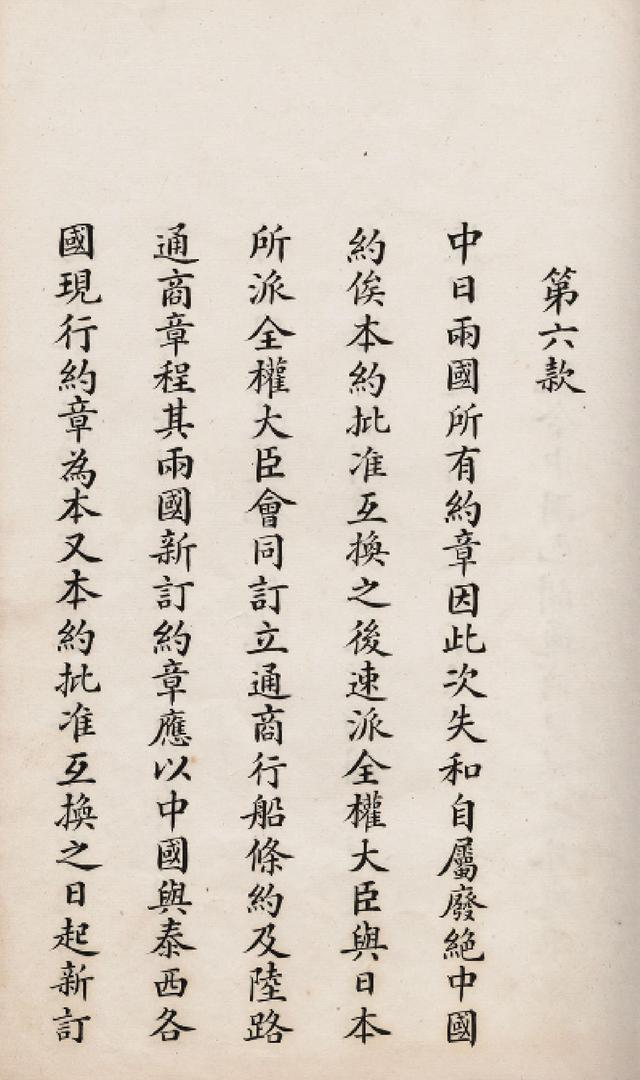 第六款
中日兩國所有約章因此次失和自屬廢絕中國
約俟本約批准互換之後速派全權大臣與日本
所派全權大臣會同訂立通商行船條約及陸路
通商章程其兩國新訂約章應以中國與泰西各
國現行約章為本又本約批准互換之日起新訂